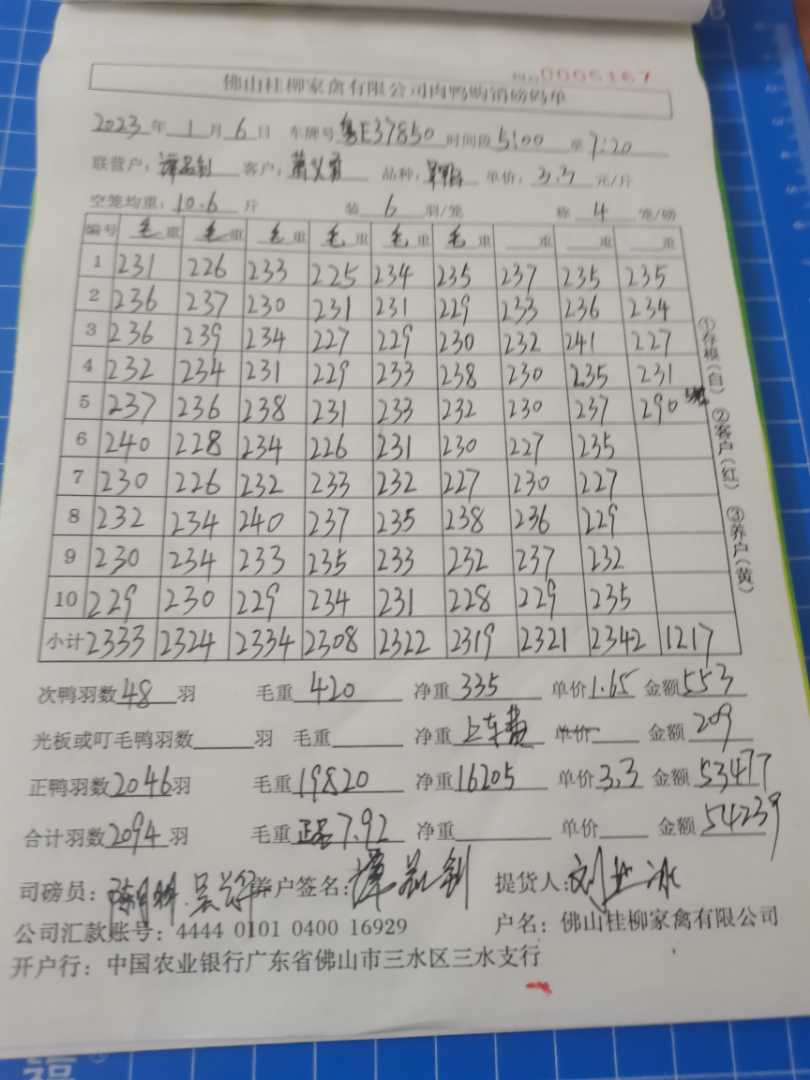 0006167
佛山桂柳家禽有限公司肉鸭购销磅码单
2023年1月6日 车牌号粤E37850时间段5:00至7:20
联营户： 客户： 品种： 单价：3.3元/斤
空笼均重：10.6斤 装6羽/笼 称4笼/磅
编号 毛重 毛重 毛重 毛重 毛重 毛重 重 重 重
1 231 226 233 225 234 235 237 235 235
2 236 237 230 231 231 229 233 236 234
3 236 239 234 227 229 230 232 241 227
4 232 234 231 229 233 238 230 235 231
5 237 236 238 231 233 232 230 237 290
6 240 228 234 226 231 230 227 235
7 230 226 232 233 232 227 230 227
8 232 234 240 237 235 238 236 229
9 230 234 233 235 233 232 237 232
10 229 230 229 234 231 228 229 235
小计 2333 2324 2334 2308 2322 2319 2321 2342 1217
①存根（白） ②客户（红） ③养户（黄）
次鸭羽数48羽 毛重420 净重335 单价1.65 金额553
光板或叮毛鸭羽数 羽 毛重 净重上车费 单价 金额209
正鸭羽数2046羽 毛重19820 净重16205 单价3.3 金额53477
合计羽数2094羽 毛重正品7.92 净重 单价 金额54239
司磅员： 养户签名： 提货人：
公司汇款账号：4444 0101 0400 16929 户名：佛山桂柳家禽有限公司
开户行：中国农业银行广东省佛山市三水区三水支行